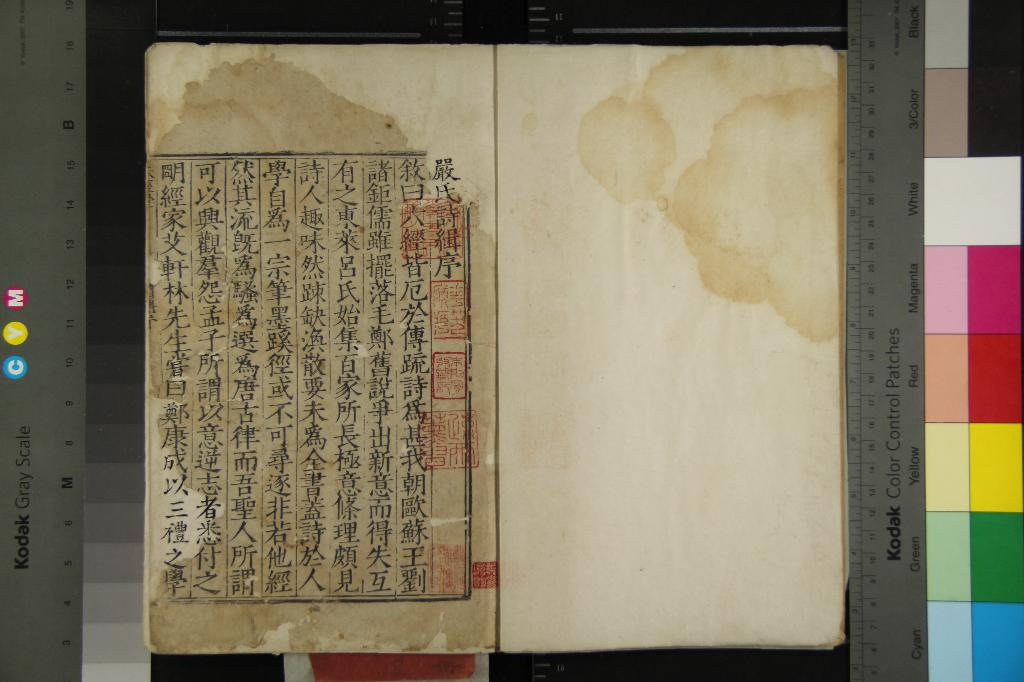 嚴氏詩緝序
敘曰六經皆厄於傳疏詩為甚我朝歐蘇王劉
諸鉅儒雖擺落毛鄭舊說爭出新意而得失互
有之東萊呂氏始集百家所長極意條理頗見
詩人趣味然踈缺渙散要未為全書蓋詩於人
學自為一宗筆墨蹊徑或不可尋逐非若他經
然其流既為騷為選為唐古律而吾聖人所謂
可以興觀羣怨孟子所謂以意逆志者悉付之
明經家艾軒林先生嘗曰鄭康成以三禮之學
Kodak Gray Scale
C Y M
Kodak Color Control Patches
Black
3/Color
White
Magenta
Red
Yellow
Green
Cyan